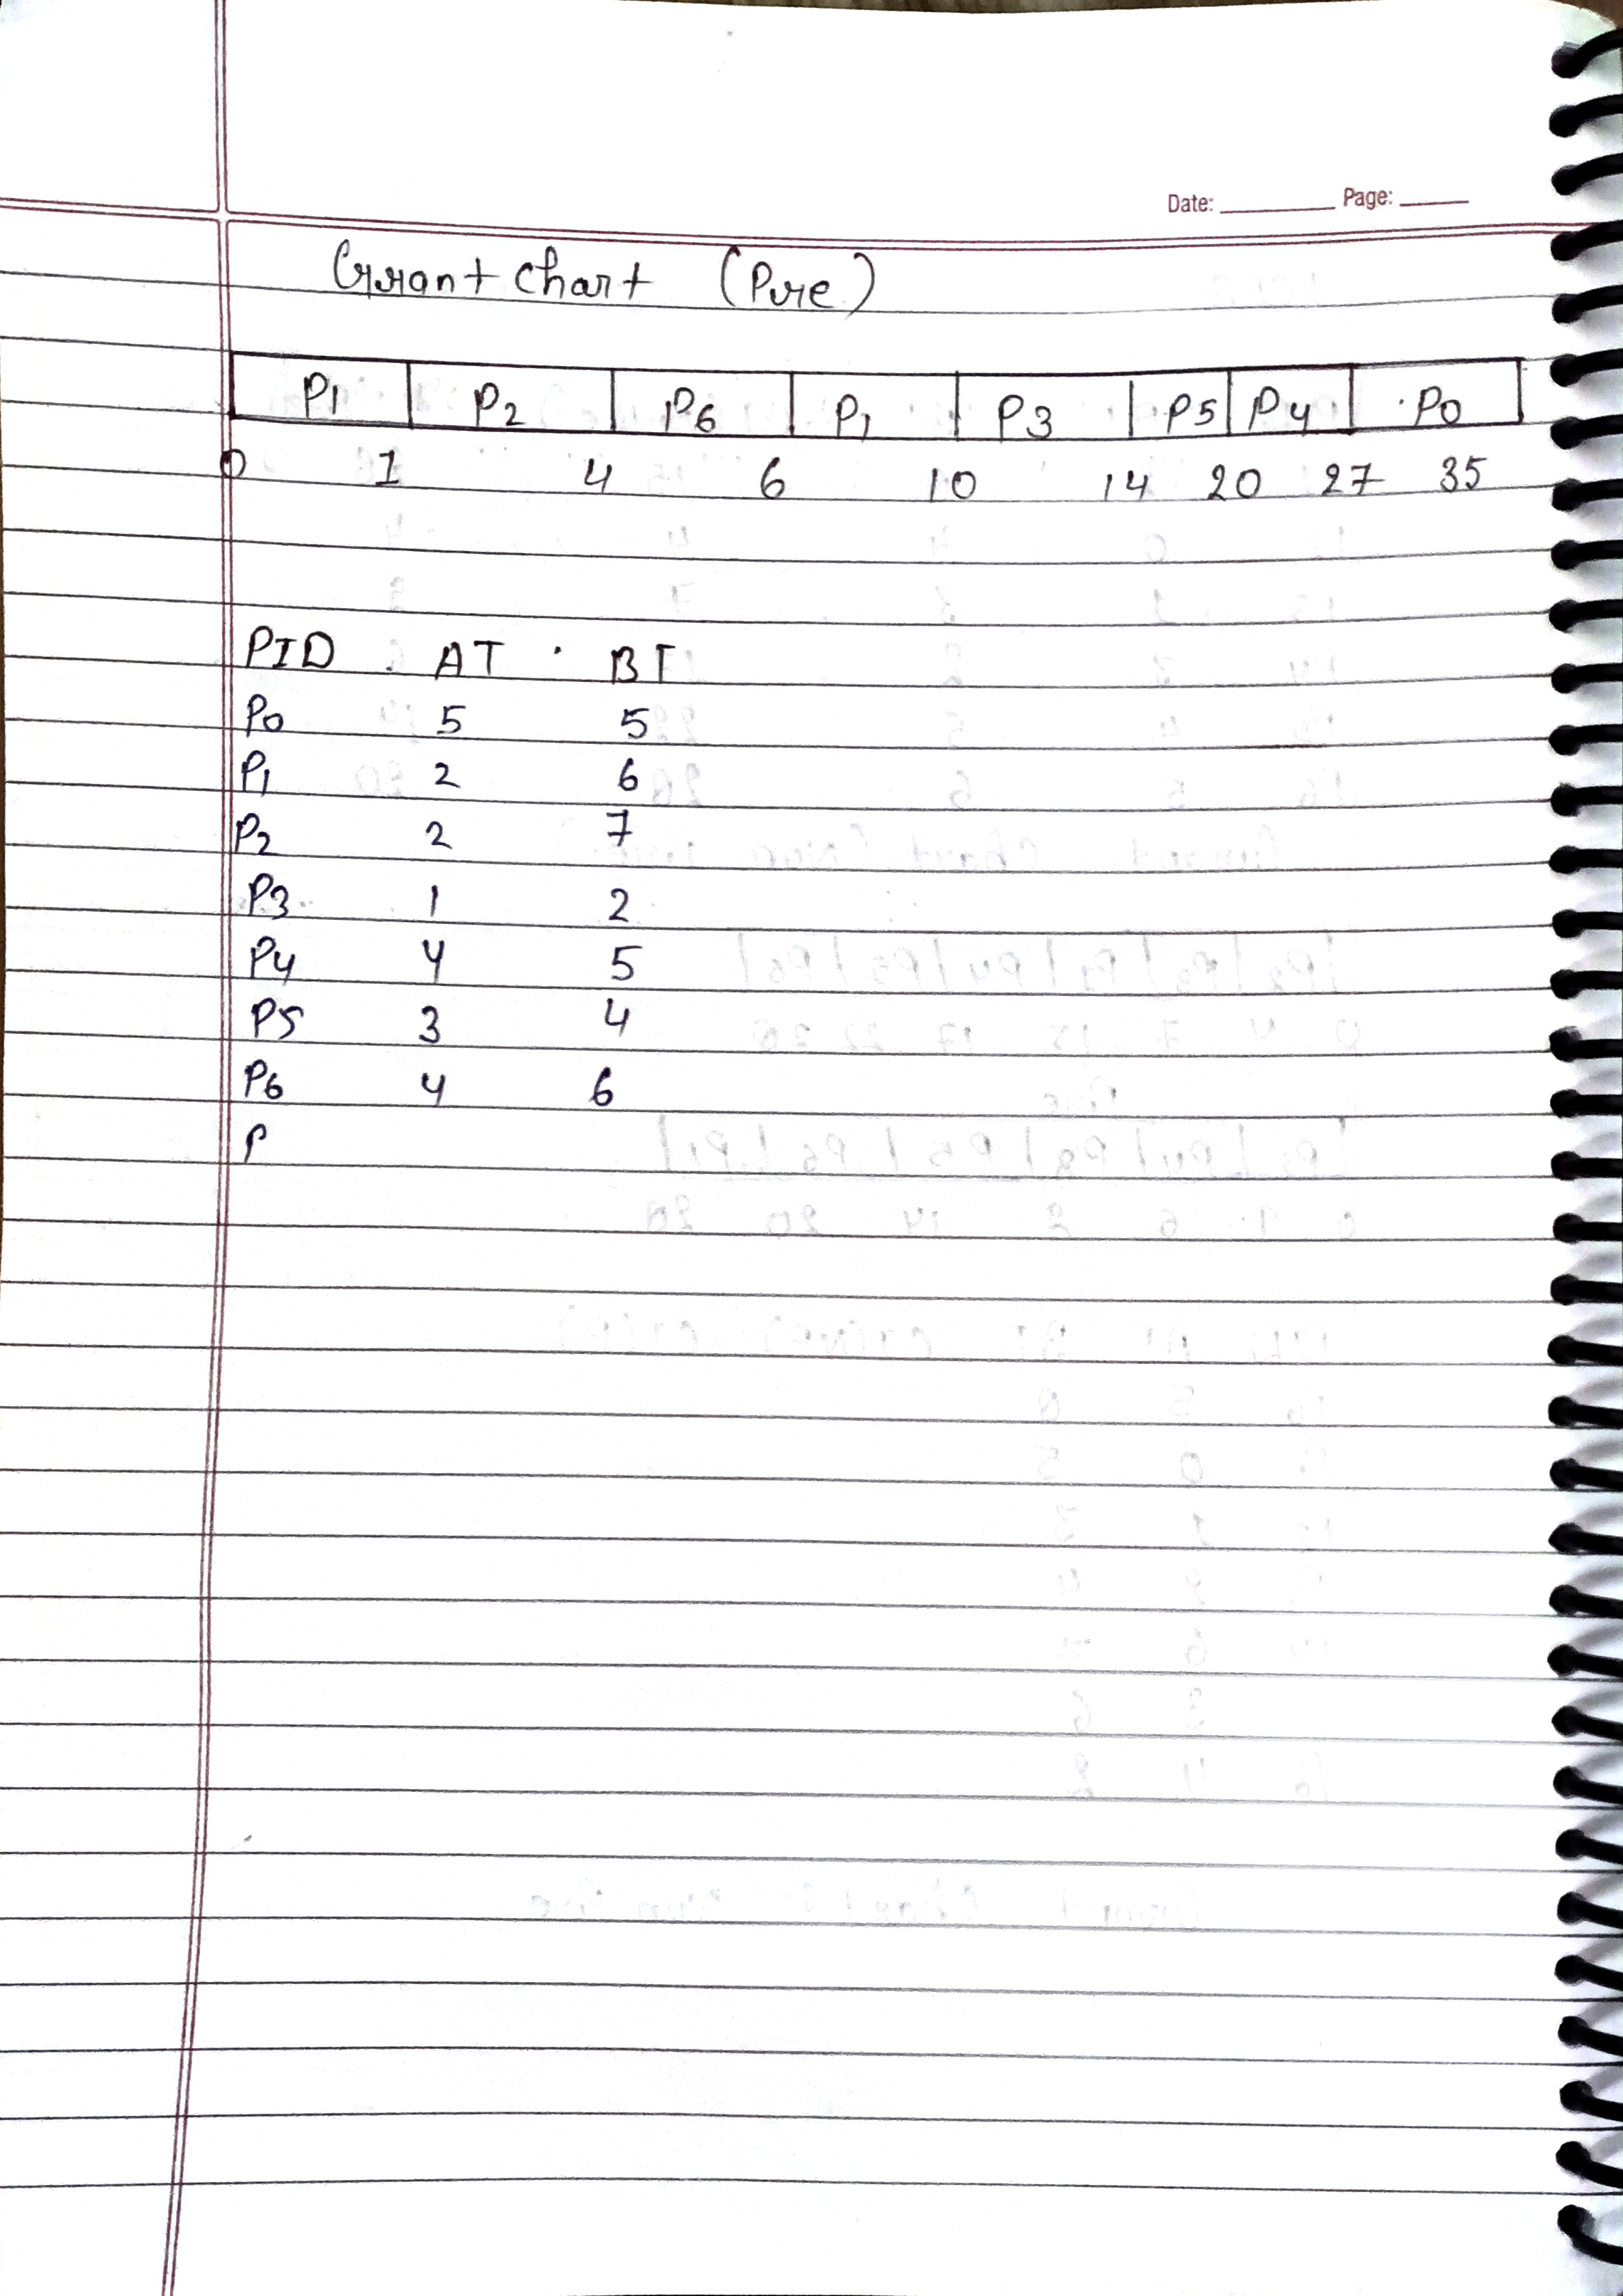 Date: Page:
Grant chart (Pre)
P1 P2 P6 P1 P3 P5 P4 P0
0 1 4 6 10 14 20 27 35
PID AT BT
P0 5 5
P1 2 6
P2 2 7
P3 1 2
P4 4 5
P5 3 4
P6 4 6
P